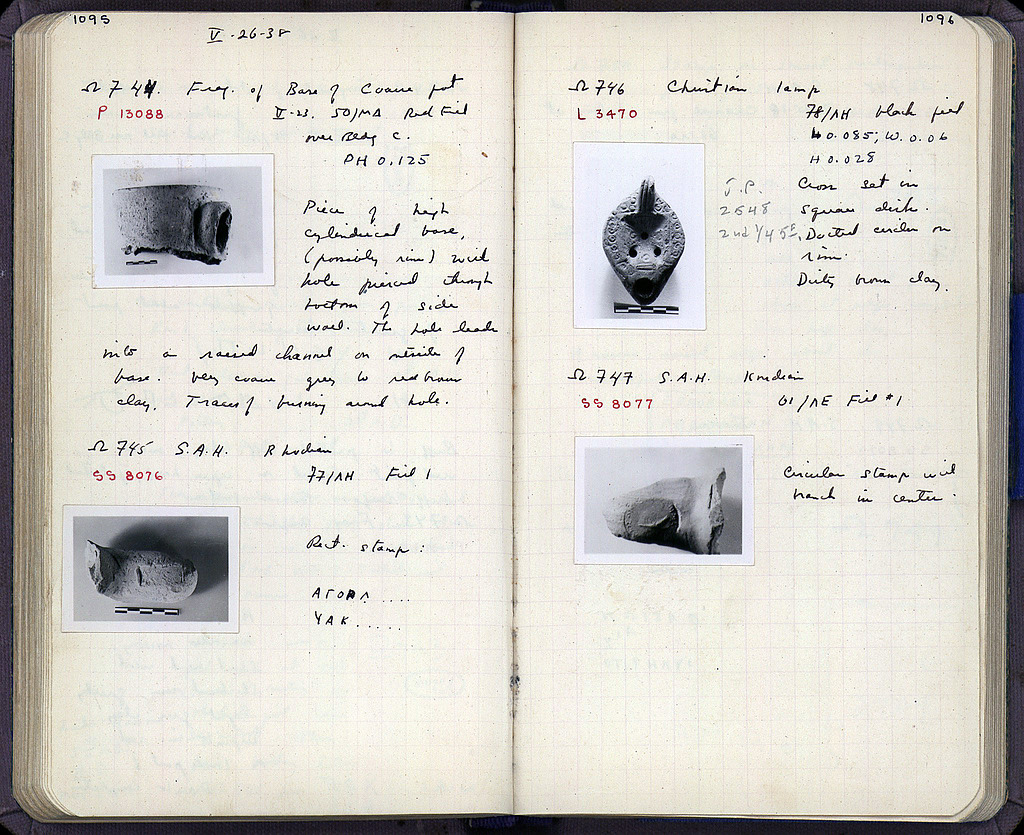 1095
V-26-38
Ω 744. Frag. of Base of Coarse pot
P 13088
V-23. 50/MA Red Fill
over Bldg C.
PH 0.125
Piece of high
cylindrical base,
(possibly rim) with
hole pierced through
bottom of side
wall. The hole leads
into a raised channel on outside of
base. Very coarse grey to red brown
clay. Traces of burning around hole.
Ω 745 S.A.H. Rhodian
SS 8076
77/ΛH Fill 1
Rect. stamp:
ΑΓΟΡΑ ....
ΥΑΚ .....
1096
Ω 746 Christian lamp
L 3470
78/ΛH black fill
L 0.085; W. 0.06
H 0.028
J.P.
2648
2nd 1/4 5th
Cross set in
square disk.
Dotted circles on
rim.
Dirty brown clay.
Ω 747 S.A.H. Knidian
SS 8077
61/ΛE Fill #1
Circular stamp with
branch in center.